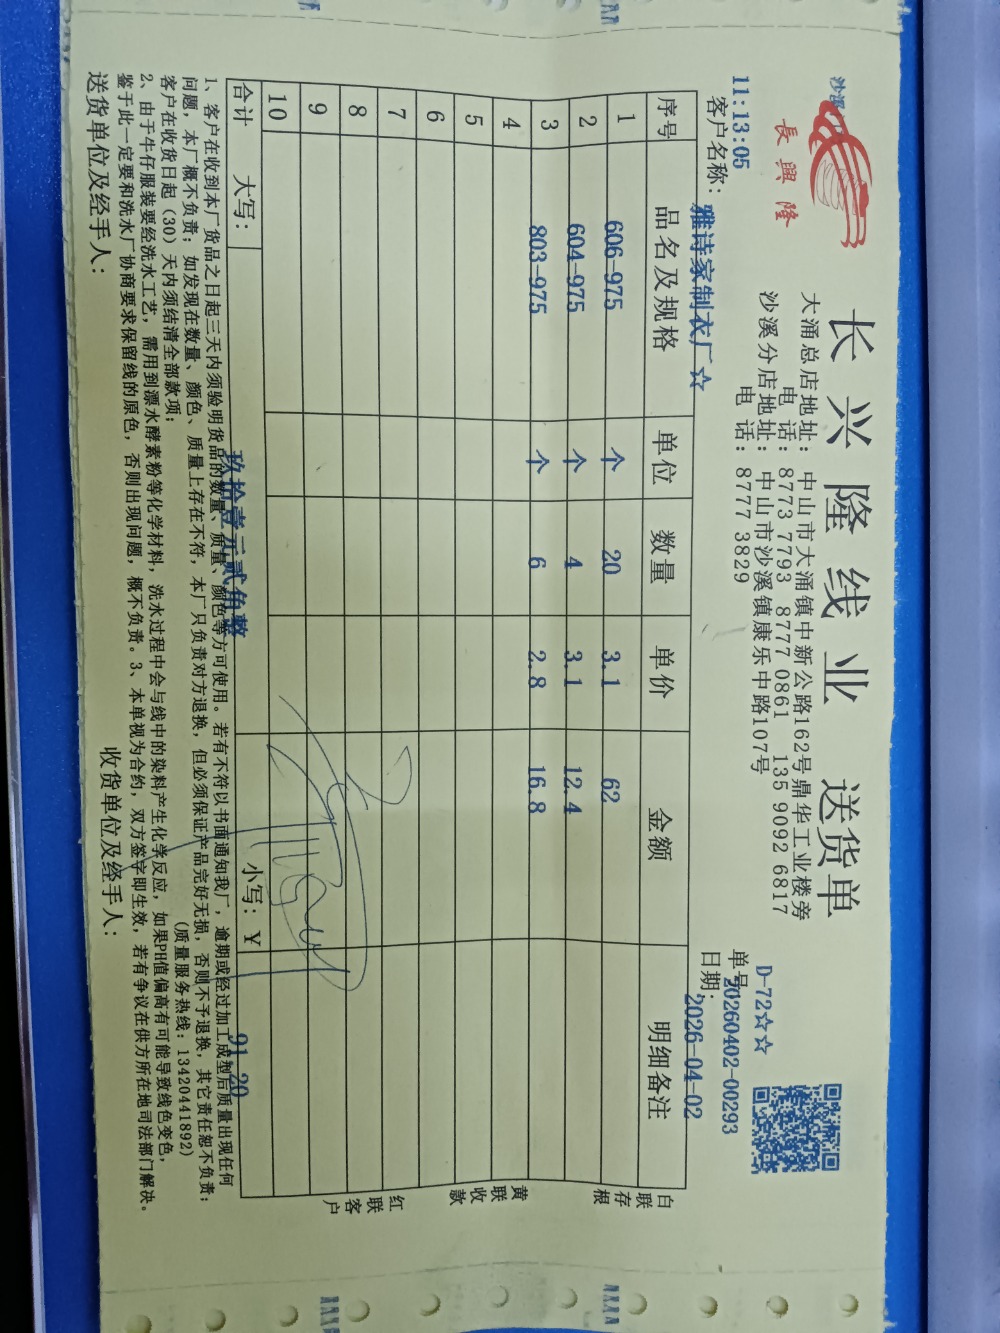 長興隆
长兴隆线业 送货单
大涌总店地址：中山市大涌镇中新公路162号鼎华工业楼旁
电 话：8773 7793 8777 0861 135 9092 6817
沙溪分店地址：中山市沙溪镇康乐中路107号
电 话：8777 3829
D-72☆☆
11:13:05
单号 20260402-00293
客户名称：雅诗家制衣厂☆
日期：2026-04-02
序号 品名及规格 单位 数量 单价 金额 明细备注
1 606-975 个 20 3.1 62
2 604-975 个 4 3.1 12.4
3 803-975 个 6 2.8 16.8
4
5
6
7
8
9
10
合计 大写：玖拾壹元贰角整 小写：￥ 91.20
白联存根
黄联收款
红联客户
1、客户在收到本厂货品之日起三天内须验明货品的数量、质量、颜色等方可使用。若有不符以书面通知我厂，逾期或经过加工成型后质量出现任何
问题，本厂概不负责；如发现在数量、颜色、质量上存在不符，本厂只负责对方退换，但必须保证产品完好无损，否则不予退换，其它责任恕不负责；
客户在收货日起（30）天内须结清全部款项； （质量服务热线：13420441892）
2、由于牛仔服装要经洗水工艺，需用到漂水酵素粉等化学材料，洗水过程中会与线中的染料产生化学反应，如果PH值偏高有可能导致线色变色，
鉴于此一定要和洗水厂协商要求保留线的原色，否则出现问题，概不负责。3、本单视为合约，双方签字即生效，若有争议在供方所在地司法部门解决。
送货单位及经手人： 收货单位及经手人：